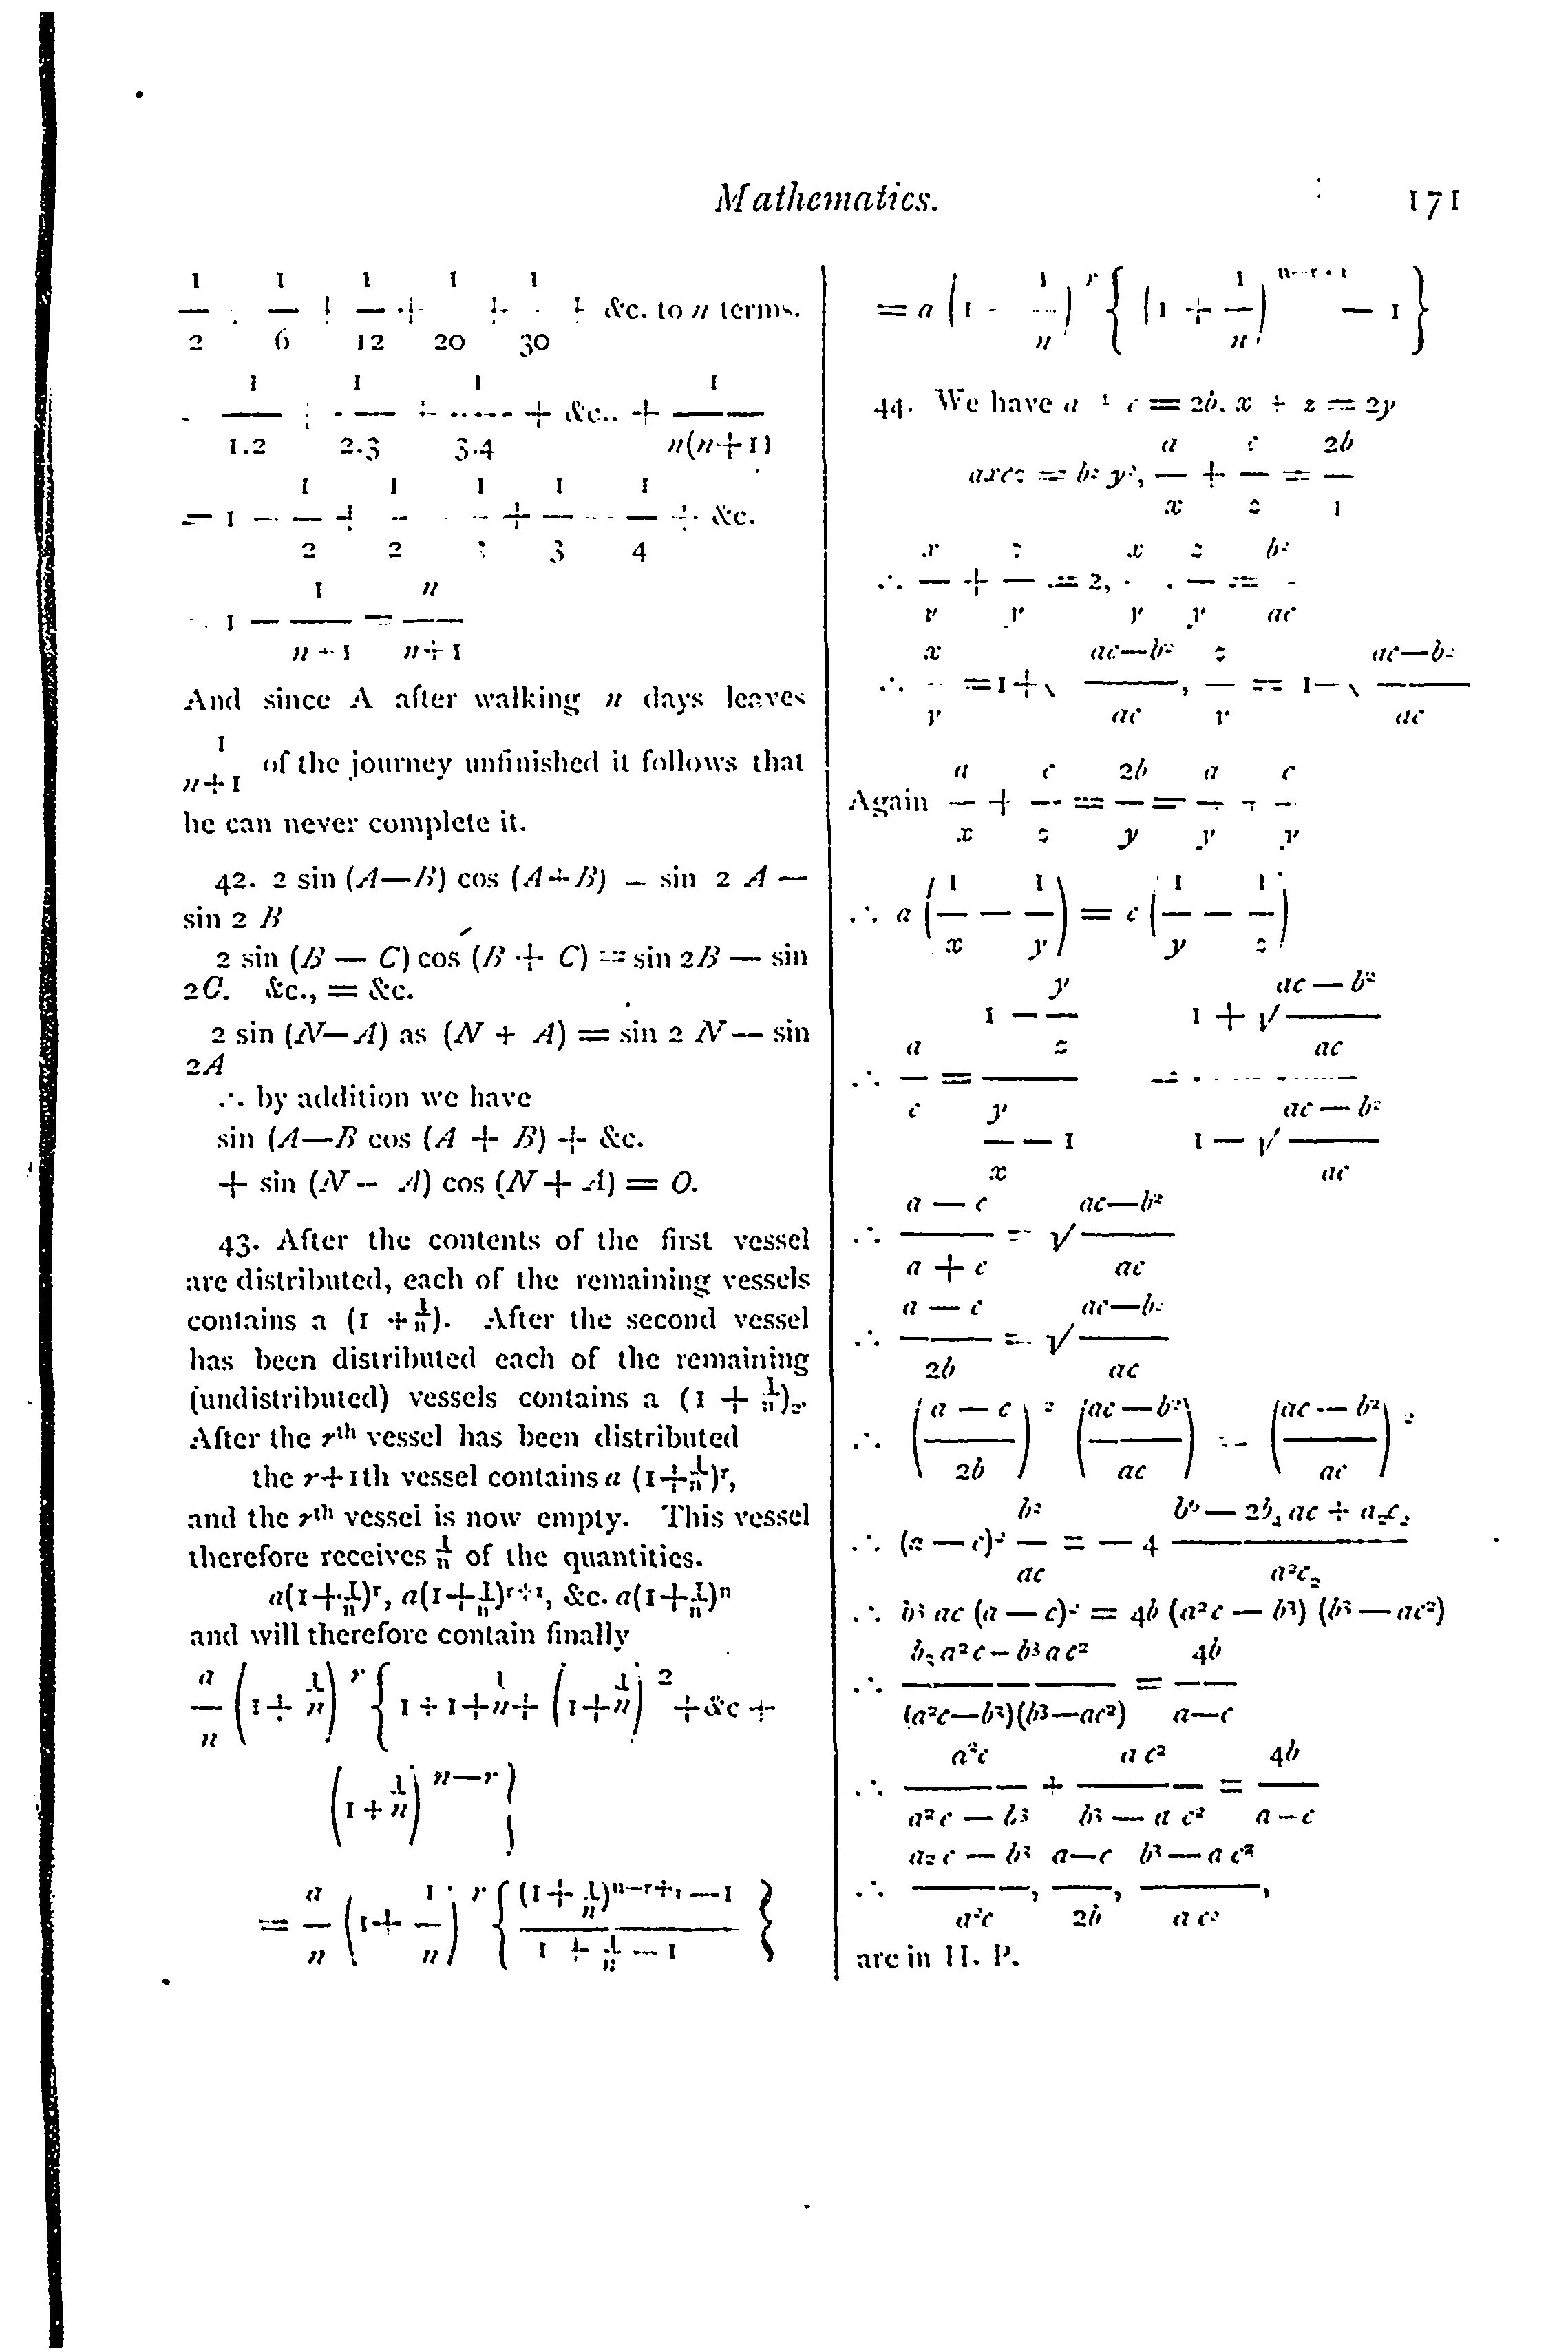 Mathematics. 171
1/2 + 1/6 + 1/12 + 1/20 + 1/30 + &c. to n terms.
= 1/1.2 + 1/2.3 + 1/3.4 + &c.. + 1/n(n+1)
= 1 — 1/2 + 1/2 — 1/3 + 1/3 — 1/4 + &c.
= 1 — 1/n+1 = n/n+1
And since A after walking n days leaves
1/n+1 of the journey unfinished it follows that
he can never complete it.
42. 2 sin (A—B) cos (A+B) = sin 2 A —
sin 2 B
2 sin (B — C) cos (B + C) = sin 2B — sin
2C. &c., = &c.
2 sin (N—A) as (N + A) = sin 2 N — sin
2A
∴ by addition we have
sin (A—B cos (A + B) + &c.
+ sin (N — A) cos (N + A) = O.
43. After the contents of the first vessel
are distributed, each of the remaining vessels
contains a (1 + 1/n). After the second vessel
has been distributed each of the remaining
(undistributed) vessels contains a (1 + 1/n)₂.
After the rth vessel has been distributed
the r+1th vessel contains a (1+1/n)^r,
and the rth vessel is now empty. This vessel
therefore receives 1/n of the quantities.
a(1+1/n)^r, a(1+1/n)^r+1, &c. a(1+1/n)^n
and will therefore contain finally
a/n (1+ 1/n)^r { 1 + 1+1/n+ (1+1/n)^2 +&c +
(1+1/n)^n—r }
= a/n (1+ 1/n)^r { (1+1/n)^n—r+1 —1 / 1 + 1/n — 1 }
= a (1 + 1/n)^r { (1 + 1/n)^n—r+1 — 1 }
44. We have a + c = 2b, x + z = 2y
axcz = b² y², a/x + c/z = 2b/1
∴ x/y + z/y = 2, x/y . z/y = b²/ac
∴ x/y =1+√ ac—b²/ac, z/y = 1—√ ac—b²/ac
Again a/x + c/z = 2b/y = a/y + c/y
∴ a (1/x — 1/y) = c (1/y — 1/z)
∴ a/c = 1 — y/z / y/x — 1 = 1 + √ ac — b²/ac / 1 — √ ac — b²/ac
∴ a — c/a + c = √ ac—b²/ac
∴ a — c/2b = √ ac—b²/ac
∴ (a — c/2b)² (ac — b²/ac) = (ac — b²/ac)²
∴ (a — c)² b²/ac = — 4 b⁶ — 2b₄ ac + a₂c₂/a²c₂
∴ b³ ac (a — c)² = 4b (a²c — b³) (b³ — ac²)
∴ b₃ a²c – b³ ac²/(a²c—b³)(b³—ac²) = 4b/a—c
∴ a²c/a²c — b³ + a c²/b³ — a c² = 4b/a – c
∴ a₂ c — b³/a²c, a—c/2b, b³ — a c²/a c²,
are in H. P.